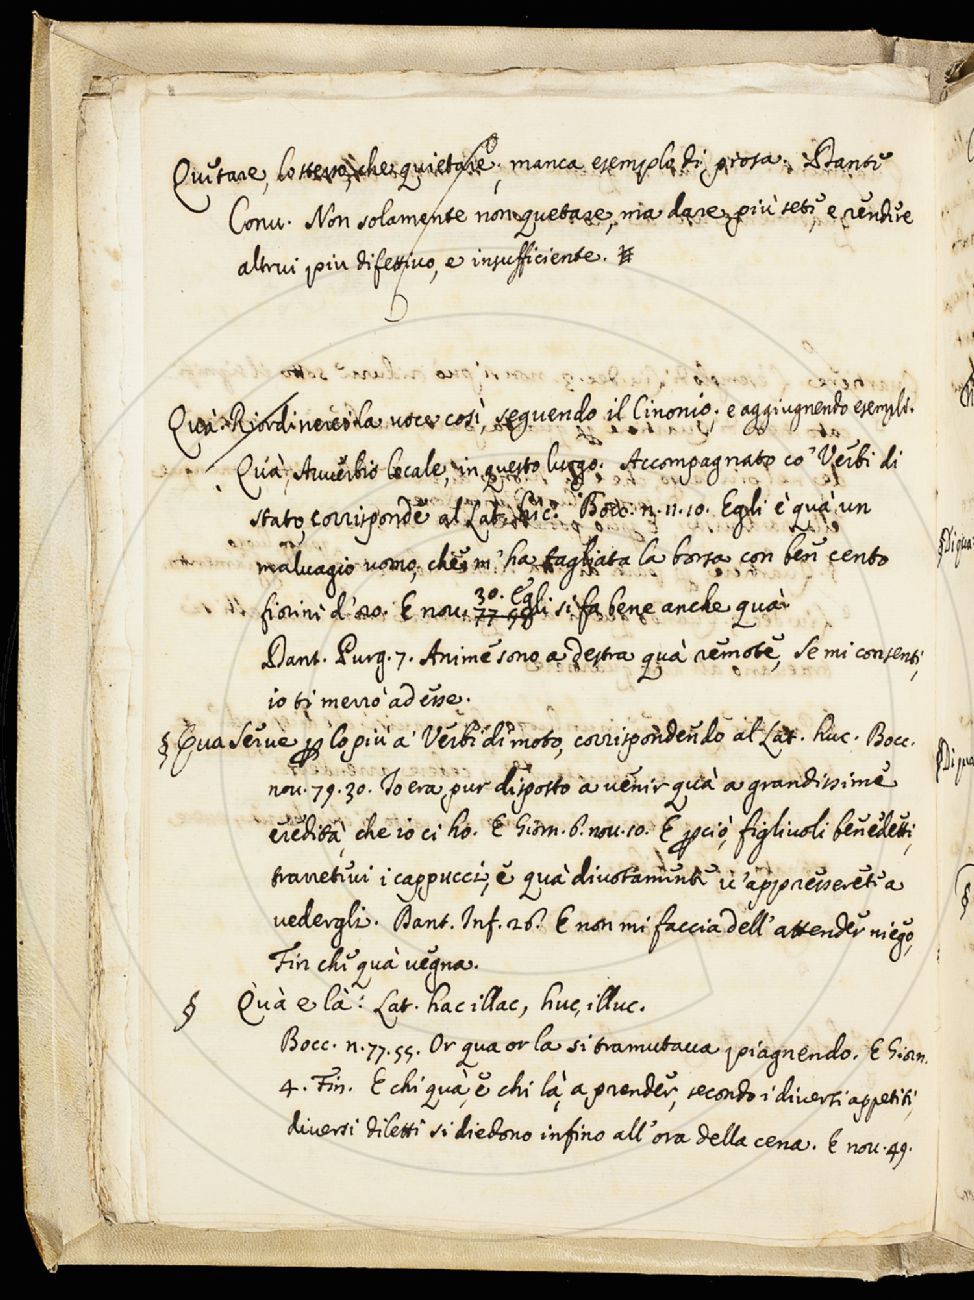 Quitare, lo stesso, che quietare; manca esemplo di prosa. Dante
Conv. Non solamente non quetare, ma dare più sete, e rendere
altrui più difettivo, e insufficiente.
Quà: Riordinerei la voce così, seguendo il Cinonio, e aggiugnendo esempli.
Quà, Avverbio locale, in questo luogo. Accompagnato co' Verbi di
stato, corrisponde al Lat. hic. Bocc. n. 11. 10. Egli è quà un
malvagio uomo, che m'ha tagliata la borsa con ben cento
fiorini d'oro. E nov. 77. 58 30. Egli si fa bene anche quà.
Dant. Purg. 7. Anime sono a destra quà remote, Se mi consenti,
io ti merrò ad esse.
§ Qua serve ꝑ lo più a' Verbi di moto, corrispondendo al Lat. huc. Bocc.
nov. 79. 30. Io era pur disposto a venir quà a grandissime
eredità, che io ci ho. E Giorn. 6. nov. 10. E ꝑciò, figlivoli benedetti,
trarretivi i cappucci, e quà divotamente v'appresserete a
vedergli. Dant. Inf. 26. E non mi faccia dell'attender niego,
Fin che quà vegna.
§ Quà e là: Lat. hac illac, huc, illuc.
Bocc. n. 77. 55. Or qua or la si tramutava piagnendo. E Giorn.
4. Fin. E chi quà, e chi là, a prender, secondo i diversi appetiti,
diversi diletti si diedono infino all'ora della cena. E nov. 49.
§ Di qua
§ Di qua
§